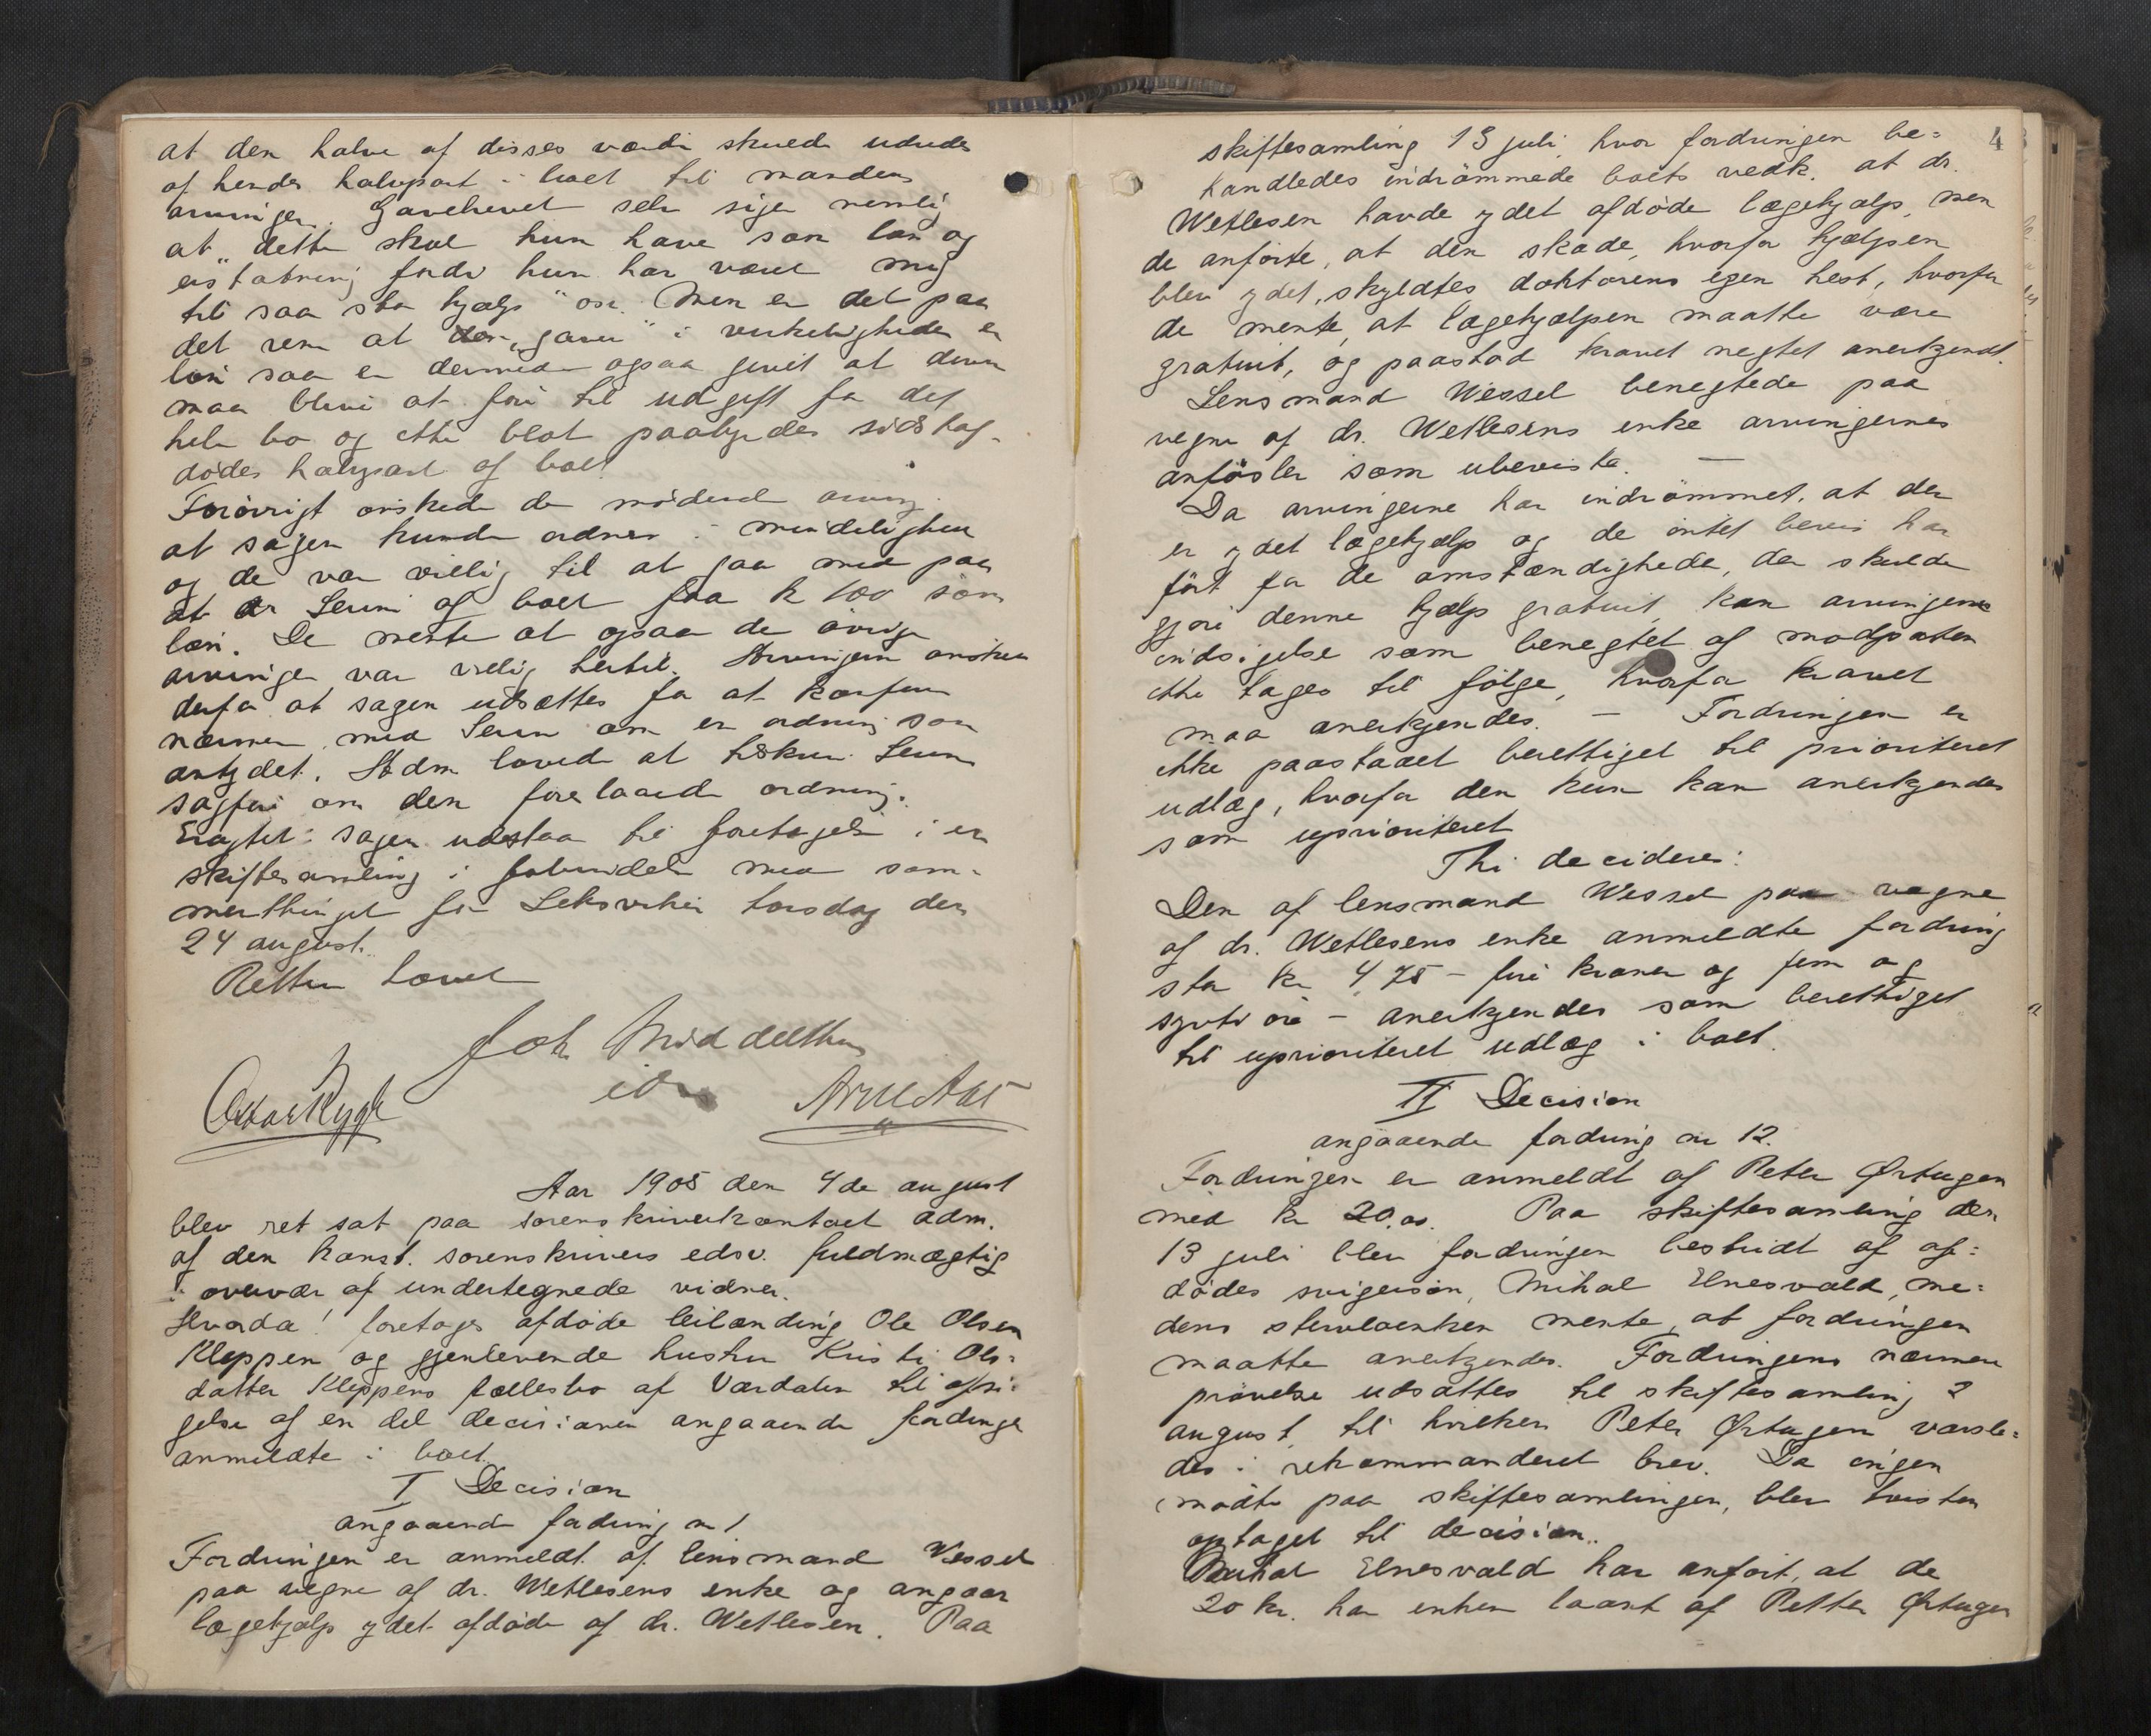 at den halve af disses værdi skulde udredes
af hendes halvpart i boet til mandens
arvinger. Gavebrevet selv siger nemlig
at "dette skal hun have som løn og
erstatning fordi hun har været mig
til saa stor hjælp" osv. Men er det paa
det rene at den "gave" i virkeligheden er
løn saa er dermed ogsaa givet at denne
maa blive at føre til udgift for det
hele bo og ikke blot paabyrdes sidstaf-
dødes halvpart af boet.
Forøvrigt ønskede de mødende arving.
at sagen kunde ordnes i mindelighed
og de var villig til at gaa med paa
at Serine af boet faar k 100 som
løn. De mente at ogsaa de øvrige
arvinger var villig hertil. Arvingerne ønsker
derfor at sagen udsættes for at konferere
nærmere med Serine om en ordning som
antydet. Adm lovede at tilskrive Serines
sagfører om den foreslaaede ordning.
Eragtet: sagen udstaar til foretagelse i en
skiftesamling i forbindelse med som-
merthinget for Leksviken torsdag den
24 august.
Retten hævet
Joh Middelthun
edsv
Oskar Rygh
Aar 1905 den 4de august
blev ret sat paa sorenskriverkontoret adm.
af den konst. sorenskrivers edsv. fuldmægtig
i overvær af undertegnede vidner.
Hvorda! foretages afdøde leilænding Ole Olsen
Kleppen og gjenlevende hustru Kristi Ols-
datter Kleppens fællesbo af Værdalen til afsi-
gelse af en del decisioner angaaende fordringer
anmeldte i boet.
I Decision
angaaende fordring nr 1
Fordringen er anmeldt af lensmand Wessel
paa vegne af dr. Wetlesens enke og angaar
lægehjælp ydet afdøde af dr. Wetlesen. Paa
4
skiftesamling 13 juli, hvor fordringen be-
handledes indrømmede boets vedk. at dr.
Wetlesen havde ydet afdøde lægehjælp, men
de anførte, at den skade, hvorfor hjælpen
blev ydet, skyldtes doktorens egen hest, hvorfor
de mente, at lægehjælpen maatte være
gratuit, og paastod kravet negtet anerkjendt.
Lensmand Wessel benegtede paa
vegne af dr. Wetlesens enke arvingernes
anførsler som ubeviste. —
Da arvingerne har indrømmet, at der
er ydet lægehjælp og de intet bevis har
ført for de omstændigheder, der skulde
gjøre denne hjælp gratuit, kan arvingernes
indsigelse som benegtet af modparten
ikke tages til følge, hvorfor kravet
maa anerkjendes. — Fordringen er
ikke paastaaet berettiget til prioriteret
udlæg, hvorfor den kun kan anerkjendes
som uprioriteret
Thi decideres:
Den af lensmand Wessel paa vegne
af dr. Wetlesens enke anmeldte fordring
stor kr 4,75 – fire kroner og fem og
sytti øre – anerkjendes som berettiget
til uprioriteret udlæg i boet.
II Decision
angaaende fordring nr 12.
Fordringen er anmeldt af Peter Ørtugen
med kr 20.00. Paa skiftesamling den
13 juli blev fordringen bestridt af af-
dødes svigersøn, Mikal Elnesvold, me-
dens stervboenken mente, at fordringen
maatte anerkjendes. Fordringens nærmere
prøvelse udsattes til skiftesamling 2
august, til hvilken Peter Ørtugen varsle-
des i rekommanderet brev. Da ingen
mødte paa skiftesamlingen, blev tvisten
optaget til decision.
Mikal Elnesvold har anført, at de
20 kr. har enken laant af Petter Ørtugen